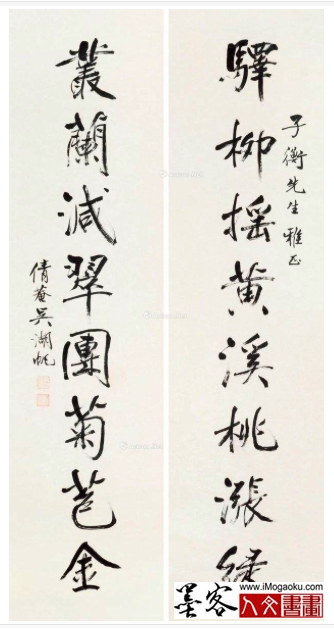 子衡先生雅正
驛柳摇黄溪桃漲緑
叢蘭減翠團菊苞金
倩菴吴湖帆
墨客
www.iMogaoku.com
人文書畫